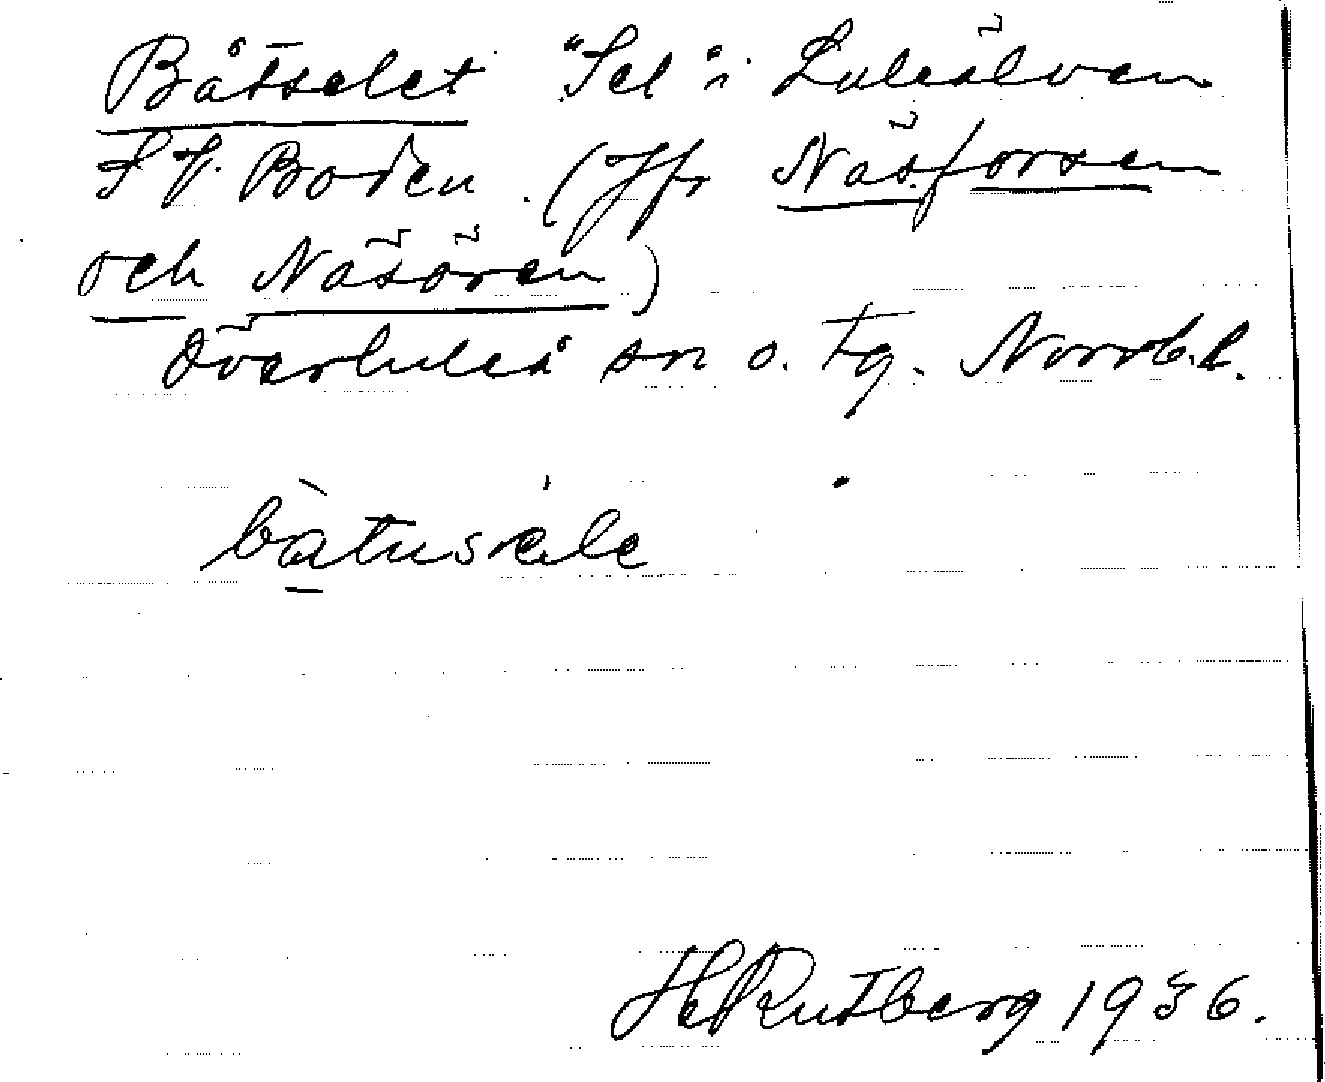 Båtselet "Sel" i Luleälven
S V. Boden. (Jfr Näsforsen
och Näsören)
Överluleå sn o. tg. Norrb. l.
båtuséle
H Rutberg 1936.